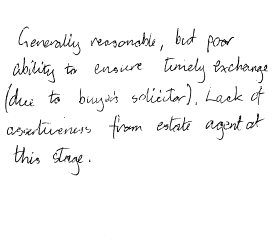 Generally reasonable, but poor
ability to ensure timely exchange
(due to buyer's solicitor). Lack of
assertiveness from estate agent at
this stage.